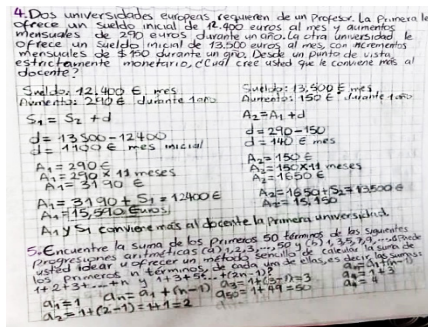 4. Dos universidades europeas requieren de un Profesor. La Primera le
ofrece un sueldo inicial de 12.400 euros al mes y aumentos
mensuales de 290 euros durante un año. La otra universidad le
ofrece un sueldo inicial de 13.500 euros al mes, con incrementos
mensuales de $150 durante un año. Desde un punto de vista
estrictamente monetario, ¿Cuál cree usted que le conviene más al
docente?
Sueldo: 12,400 € mes
Aumento: 290 € durante 1 año
S₁ = S₂ + d
d = 13500 - 12400
d = 1100 € mes inicial
A₁ = 290 €
A₁ = 290 x 11 meses
A₁ = 3190 €
A₁ = 3190 + S₁ = 12400 €
A₁ = 15,590 Euros
Sueldo: 13,500 € mes
Aumento: 150 € durante 1 año
A₂ = A₁ + d
d = 290 - 150
d = 140 € mes
A₂ = 150 €
A₂ = 150 x 11 meses
A₂ = 1650 €
A₂ = 1650 + S₂ = 13500 €
A₂ = 15,150
A₁ y S₁ conviene más al docente la Primera universidad.
5. Encuentre la suma de los Primeros 50 términos de las siguientes
Progresiones aritméticas (a) 1, 2, 3, ..., 50 y (b) 1, 3, 5, 7, 9, ... ¿Puede
usted idear u ofrecer un método sencillo de calcular la suma de
los Primeros n términos de cada una de ellas, es decir, las sumas:
1+2+3+...+n y 1+3+5+...+(2n-1)?
a₁ = 1
aₙ = a₁ + (n-1)
a₂ = 1 + (2-1) = 1+1 = 2
a₅₀ = 1 + 49 = 50